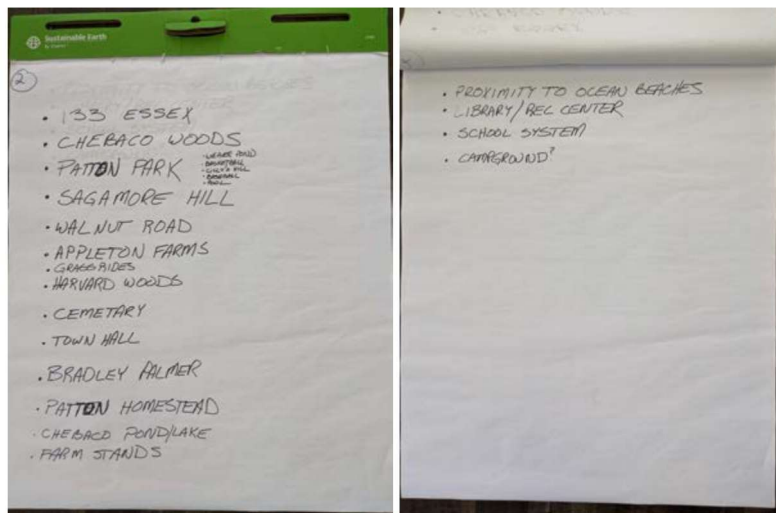 Sustainable Earth
2
• 133 ESSEX
• CHEBACO WOODS
• PATTON PARK
• WEAVER POND
• BASKETBALL
• BASEBALL
• POOL
• SAGAMORE HILL
• WALNUT ROAD
• APPLETON FARMS
• GRASS RIDES
• HARVARD WOODS
• CEMETARY
• TOWN HALL
• BRADLEY PALMER
• PATTON HOMESTEAD
• CHEBACO POND/LAKE
• FARM STANDS
• PROXIMITY TO OCEAN BEACHES
• LIBRARY/REC CENTER
• SCHOOL SYSTEM
• CAMPGROUND?